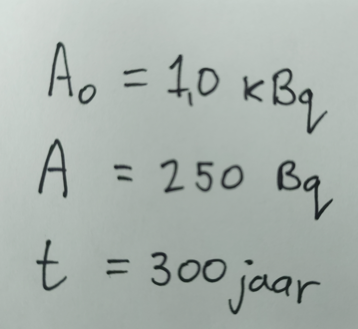 A₀ = 1,0 kBq
A = 250 Bq
t = 300 jaar